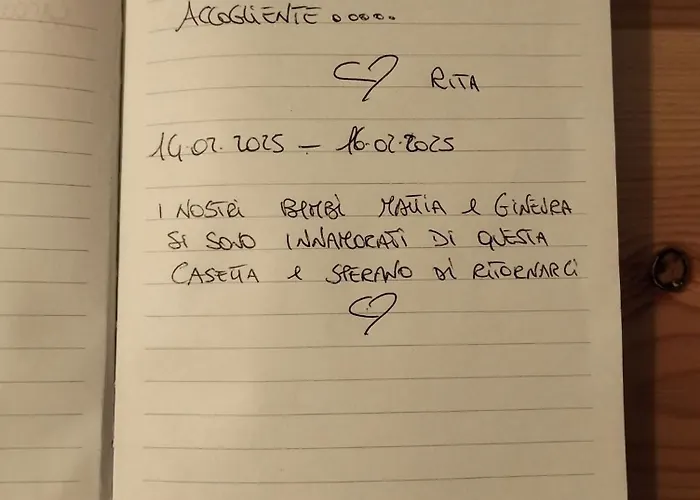 ACCOGLIENTE .....
RITA
14.02.2025 – 16.02.2025
I NOSTRI BIMBI MATTIA e GINEVRA
SI SONO INNAMORATI DI QUESTA
CASETTA e SPERANO DI RITORNARCI